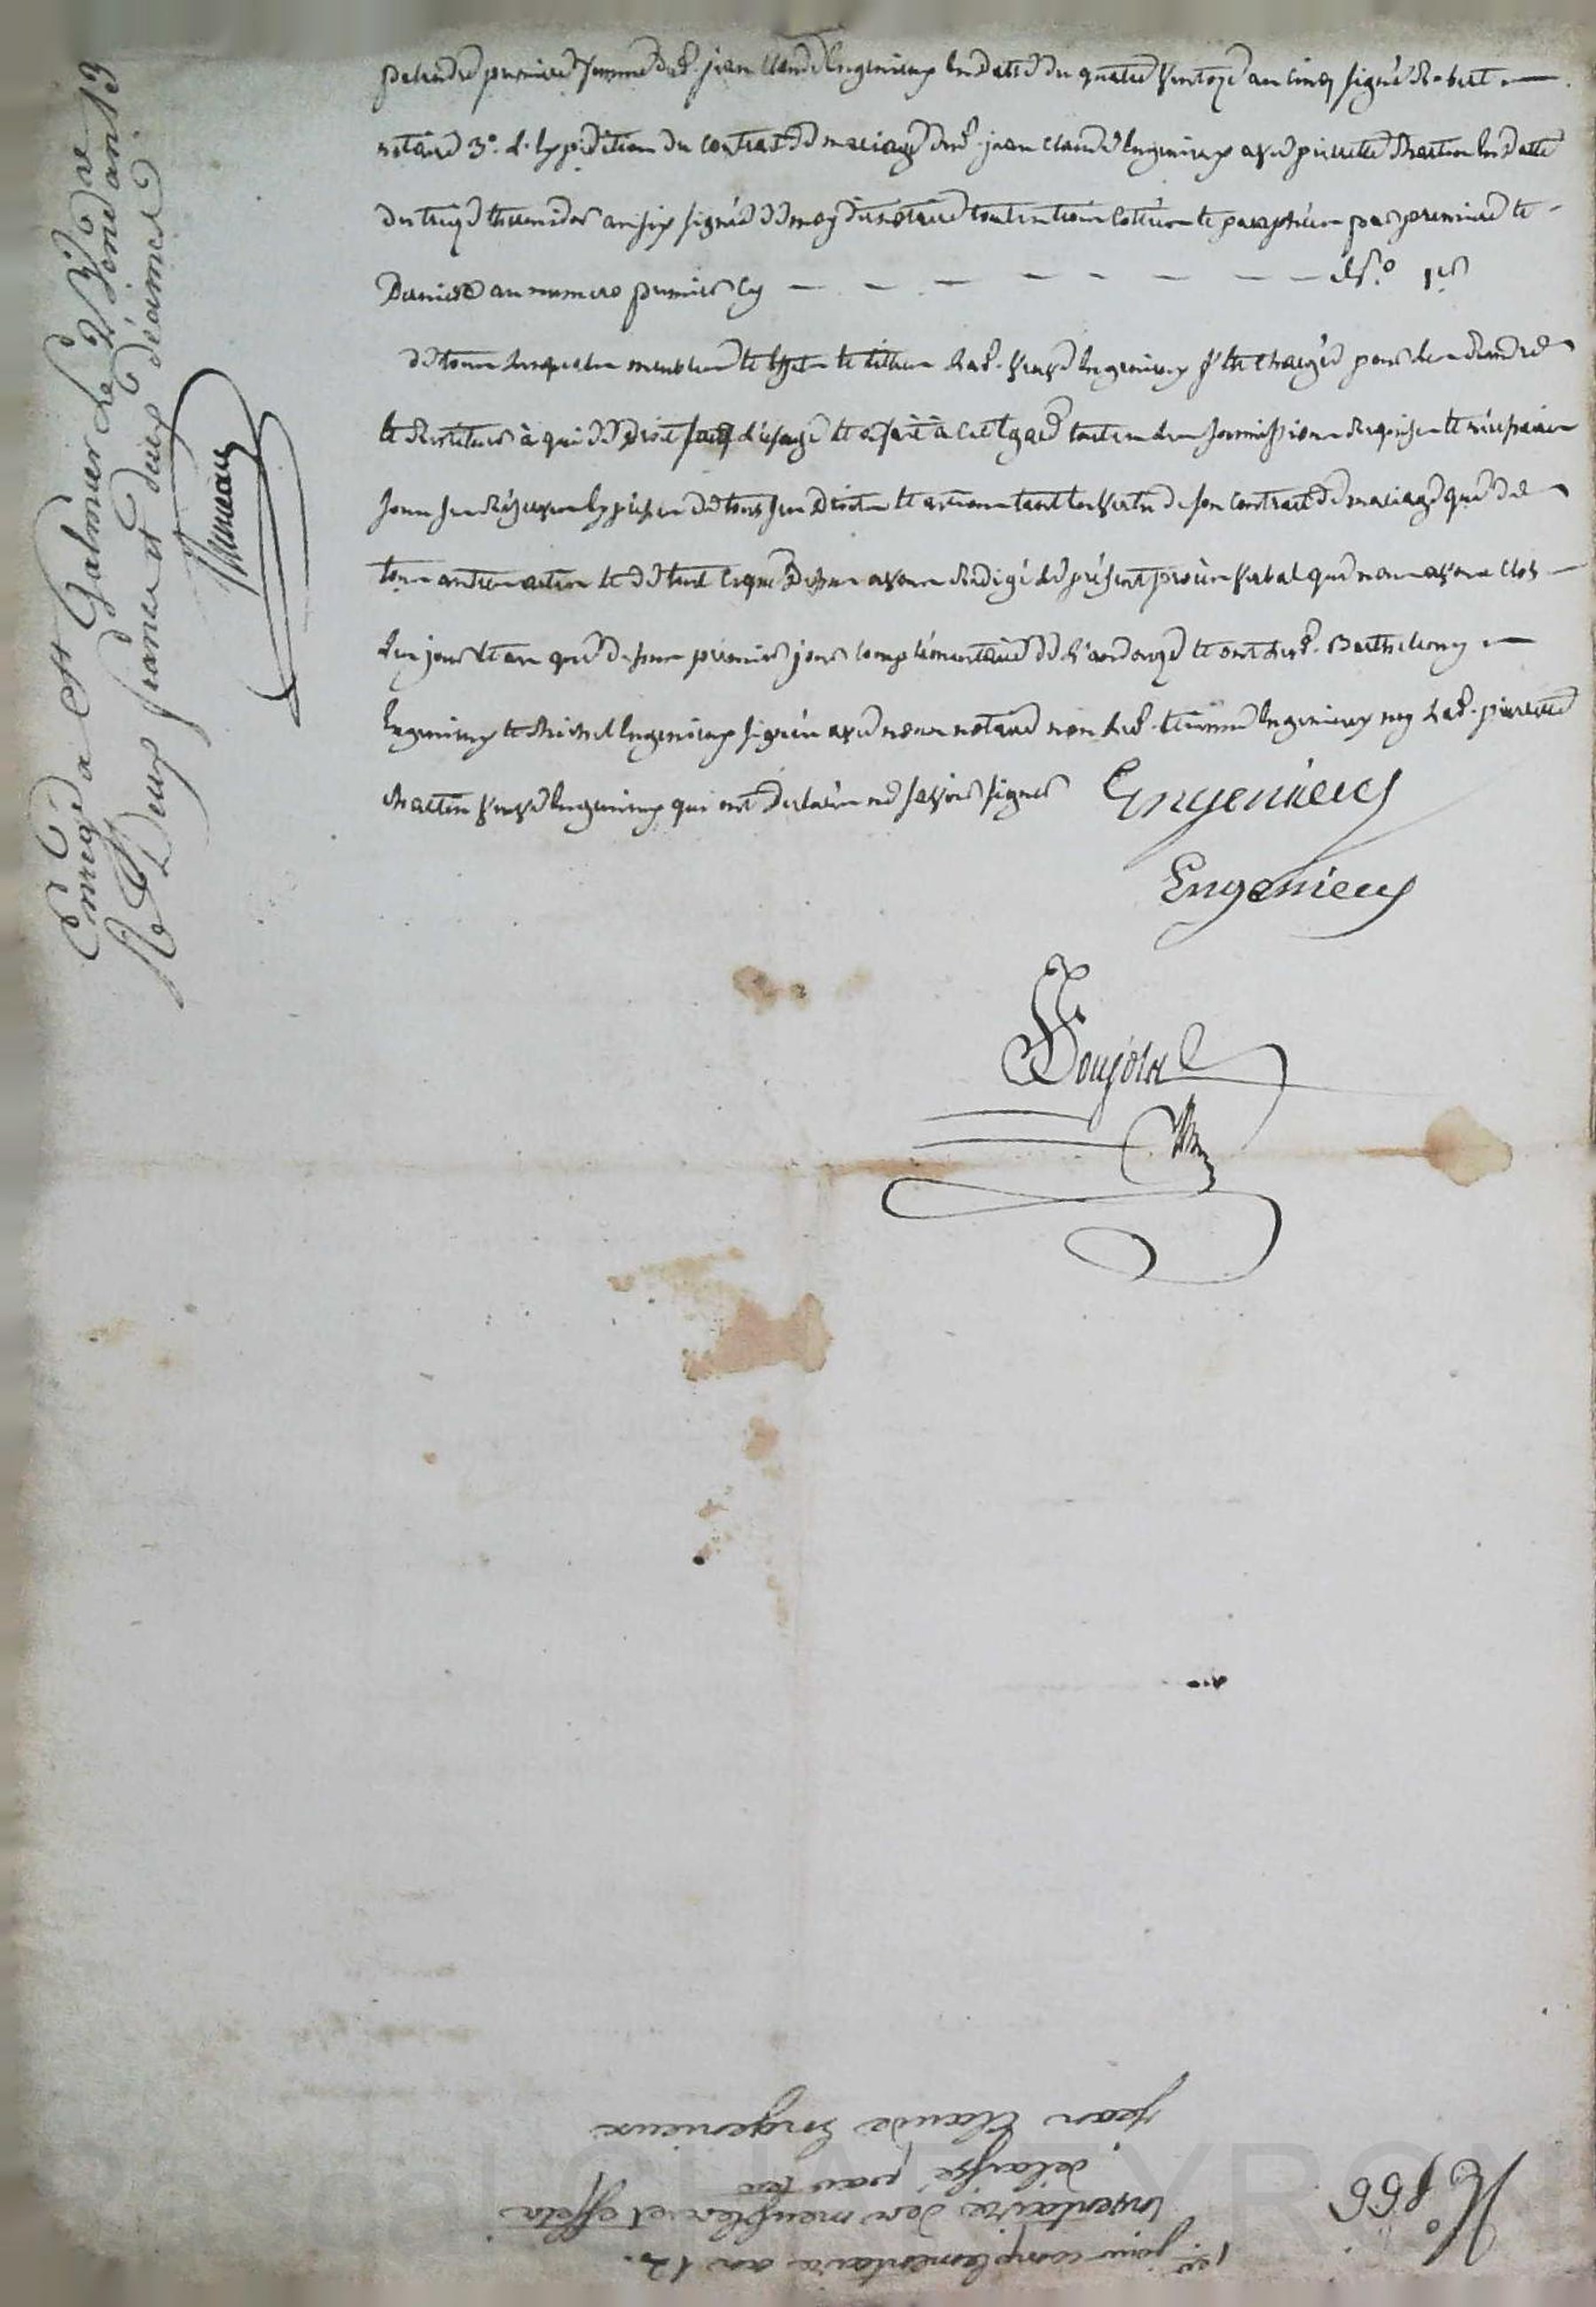 première femme dud. jean Claude Ingenieux en datte du quatre Ventoze an cinq signé Robert
notaire 3°. L'expedition du contrat de mariage dud. jean Claude Ingenieux avec pierrette Mathon en datte
du treize thermidor an six signée de moy dit notaire toutes trois cottées et paraphées par premiere et
Derniere au numero premier Cy — — — — — — — N°. 1er
De tous lesquels meubles et effets et titres lad. Veuve Ingenieux s'est chargée pour les rendre
et Restituer à qui de Droit d'usage et a fait à cet Egard toutes les soumissions Requises et nécessaires
sous les Réserves expresses de tous ses Droits et actions tant en vertu de son Contrat de mariage que de
tous autres actes et de tout ce que Dessus avons Redigé le présent procès Verbal que nous avons Clos
les jour et an que Dessus premier jour Complémentaire de l'an douze et ont lesd. Barthelemy
Ingenieux et Michel Ingenieux signés avec nous notaire non led. Etienne Ingenieux ny lad. pierrette
Mathon Veuve Ingenieux qui ont Déclarés ne savoir signer
Engenieux
Engenieux
Enregé a est Galmier le
Vend an 13
Deux francs et deux décimes
N°. 866
1er. jour complementaire an 12.
Inventaire des meubles et effets
délaissé par feu
jean Claude Ingenieux